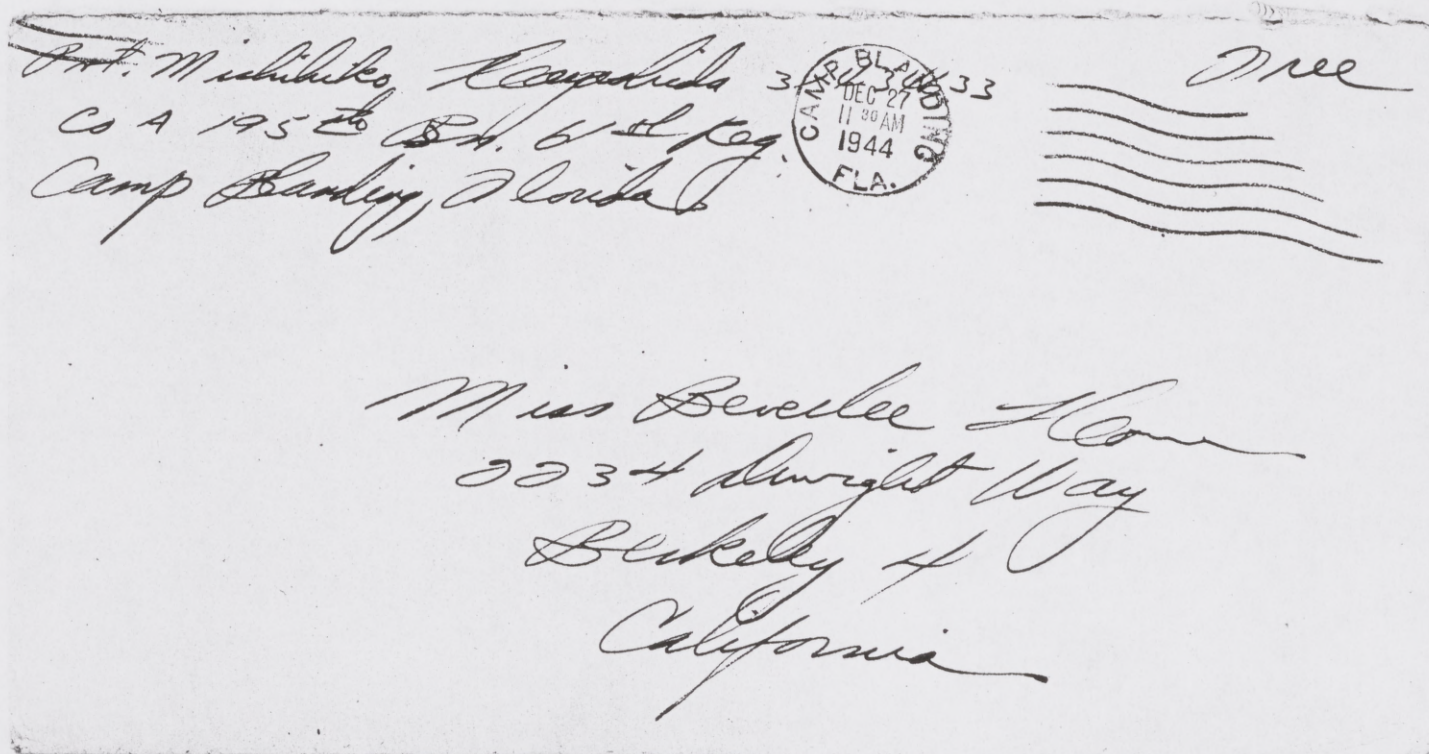 Pvt. Michihiko
Free
Co A 195th Bn. 61st Reg.
Camp Blanding, Florida
CAMP BLANDING
DEC 27
11 30 AM
1944
FLA.
Miss Beverlee
2234 Dwight Way
Berkeley 4
California